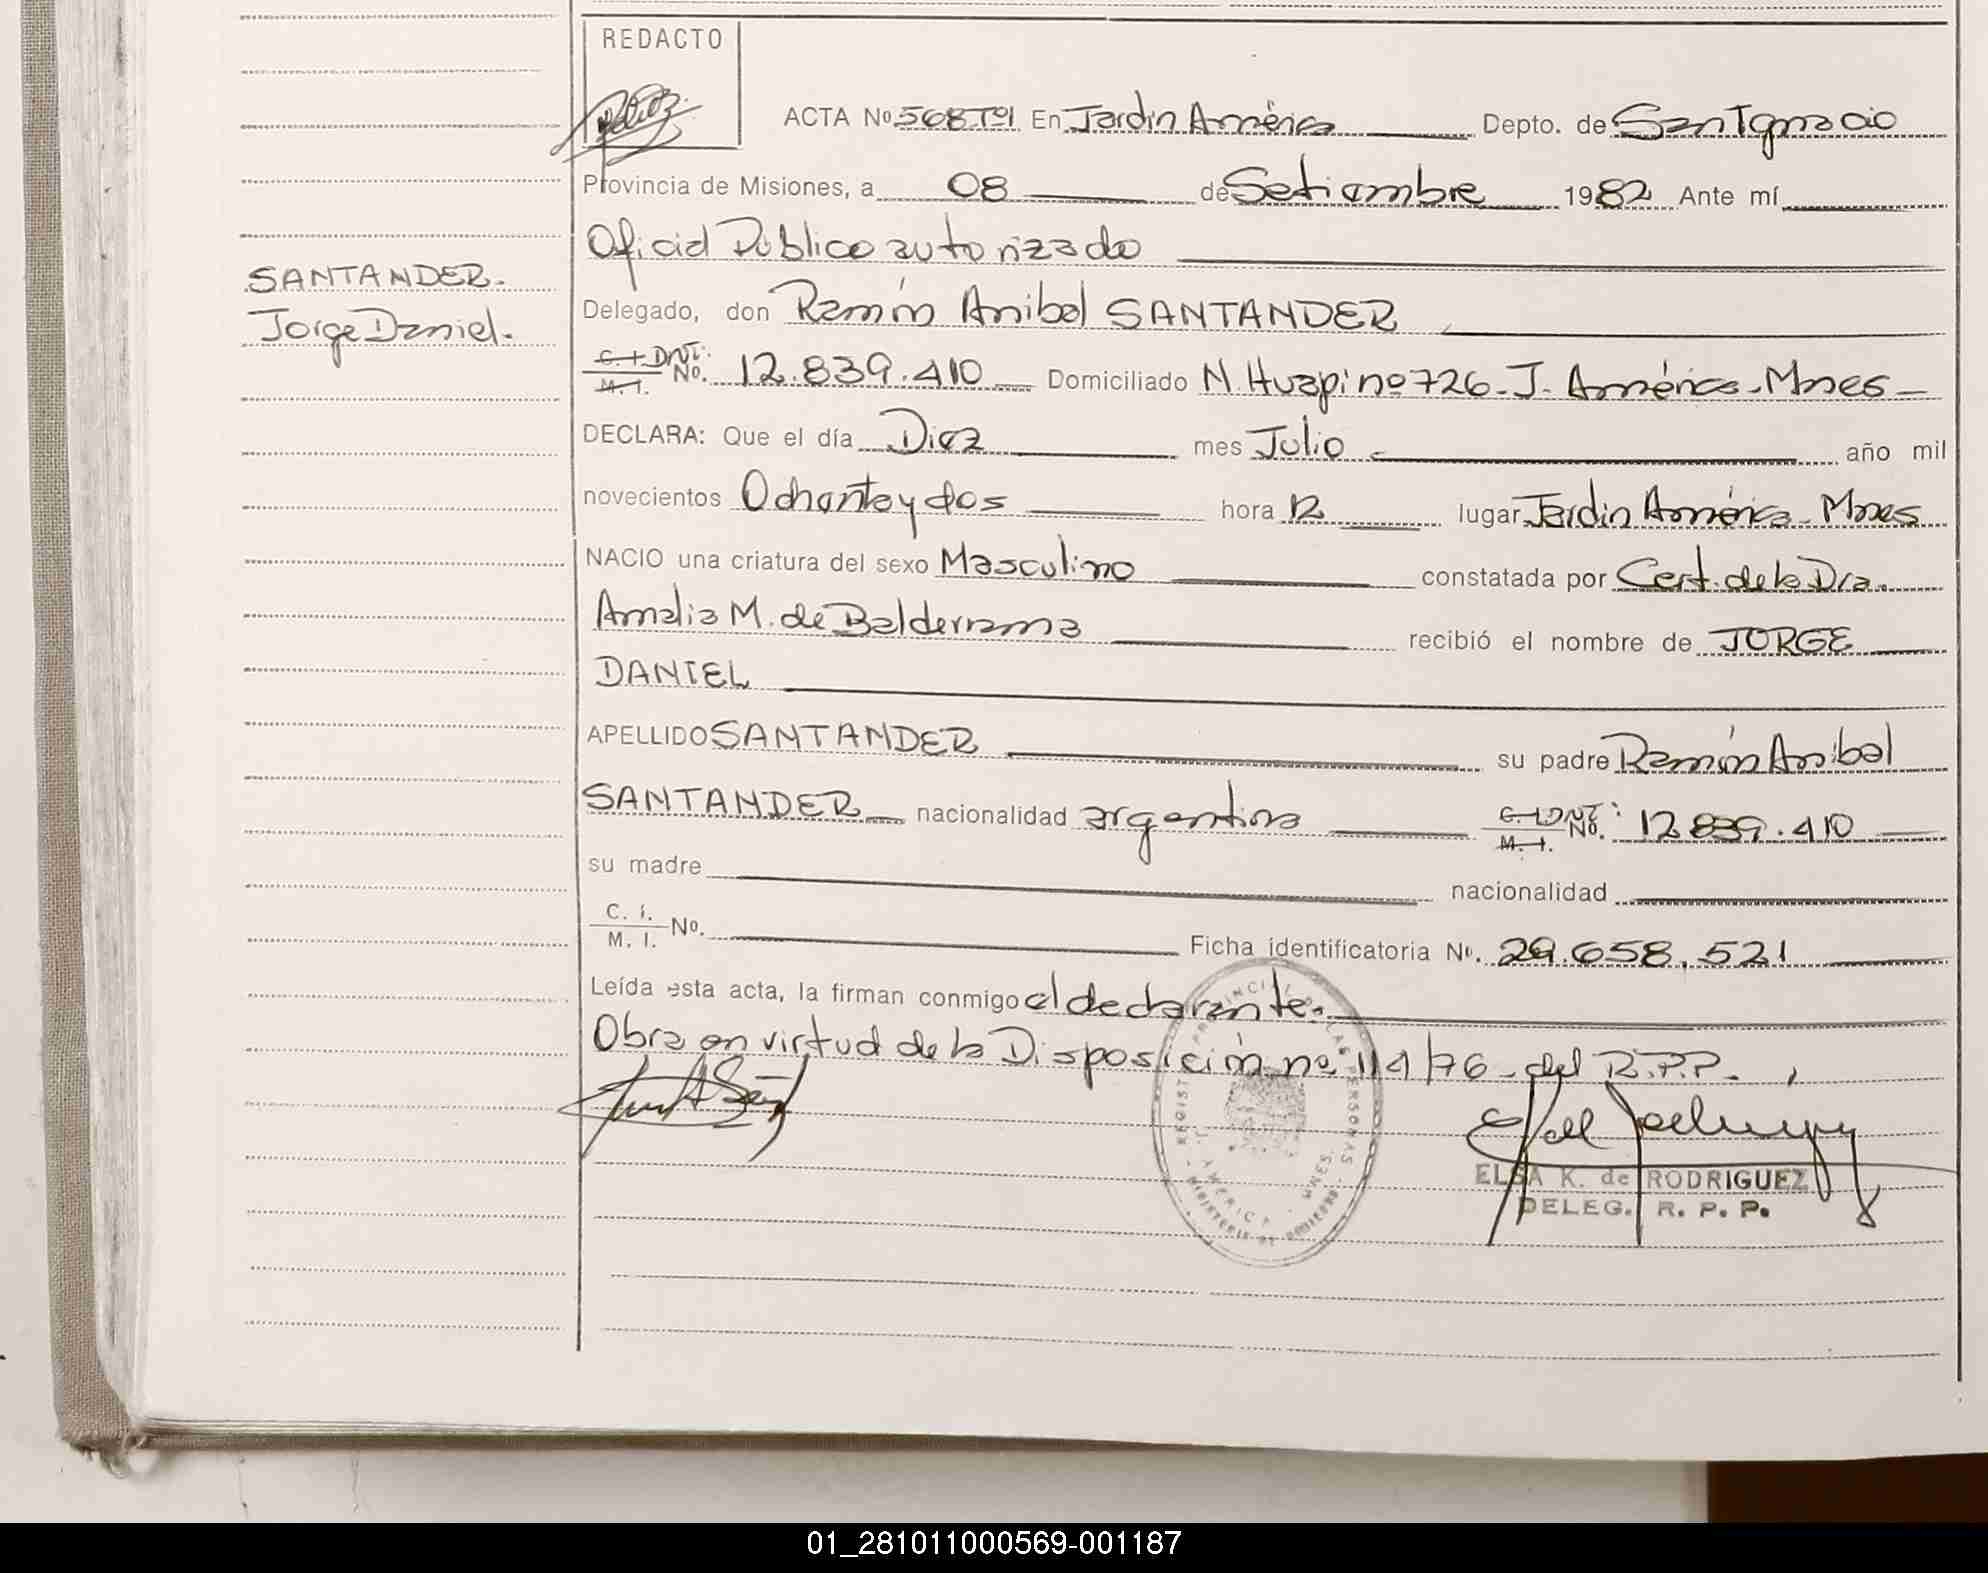 REDACTO
ACTA No 568 Tº1 En Jardín América Depto. de San Ignacio
Provincia de Misiones, a 08 de Setiembre 1982 Ante mí
Oficial Público autorizado
SANTANDER.
Jorge Daniel.
Delegado, don Ramón Anibal SANTANDER
C. I. DNI: M. I. No. 12.839.410 Domiciliado N. Huapi nº 726 - J. América - Mnes -
DECLARA: Que el día Diez mes Julio año mil
novecientos Ochenta y dos hora 12 lugar Jardín América - Mnes
NACIO una criatura del sexo Masculino constatada por Cert. de la Dra.
Amalia M. de Balderrama recibió el nombre de JORGE
DANIEL
APELLIDO SANTANDER su padre Ramón Anibal
SANTANDER nacionalidad argentina C. I. DNI: M. I. No. 12.839.410
su madre nacionalidad
C. I. M. I. No. Ficha identificatoria No. 29.658.521
Leída esta acta, la firman conmigo el declarante.
Obra en virtud de la Disposición nº 114/76 - del R.P.P.
REGISTRO PROVINCIAL DE LAS PERSONAS
J. AMERICA - MNES.
MINISTERIO DE GOBIERNO
ELSA K. de RODRIGUEZ
DELEG. R. P. P.
01_281011000569-001187